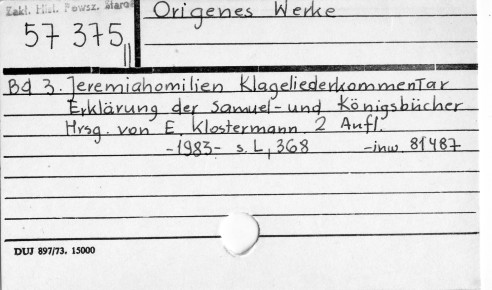 Zakł. Hist. Powsz. Staroż.
57 375 II
Origenes Werke
Bd 3. Jeremiahomilien Klageliederkommentar
Erklärung der Samuel- und Königsbücher
Hrsg. von E. Klostermann 2 Aufl.
-1983- s. L, 368 -inw. 81487
DUJ 897/73. 15000